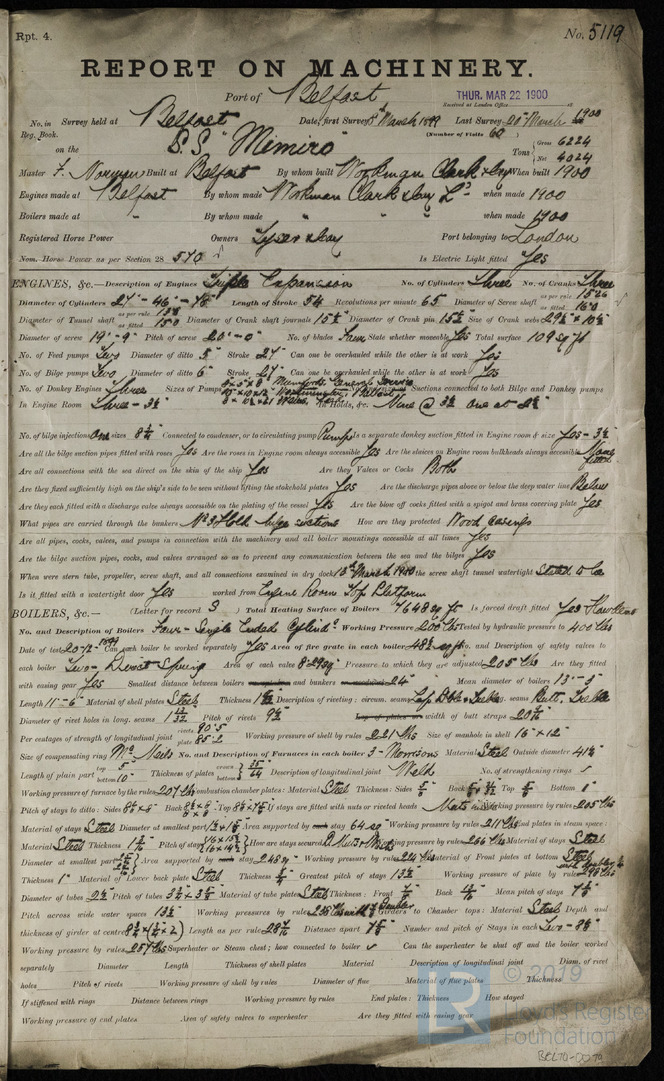 Rpt. 4. No. 5119
REPORT ON MACHINERY.
Port of Belfast
THUR. MAR 22 1900
Received at London Office
No. in Survey held at Belfast Date, first Survey March 1899 Last Survey 20th March 1900
Reg. Book. (Number of Visits 60)
on the S.S. "Mimiro" Tons Gross 6224 Net 4024
Master F. Norman Built at Belfast By whom built Workman Clark & Coy When built 1900
Engines made at Belfast By whom made Workman Clark & Coy Ld when made 1900
Boilers made at " By whom made " " when made 1900
Registered Horse Power Owners Tyser & Coy Port belonging to London
Nom. Horse Power as per Section 28 570 Is Electric Light fitted Yes
ENGINES, &c.—Description of Engines Triple Expansion No. of Cylinders Three No. of Cranks Three
Diameter of Cylinders 27" - 46" - 78" Length of Stroke 54 Revolutions per minute 65 Diameter of Screw shaft as per rule 15.26 as fitted 16.0
Diameter of Tunnel shaft as per rule as fitted 15.0 Diameter of Crank shaft journals 15½" Diameter of Crank pin 15½" Size of Crank webs 29½ × 10½
Diameter of screw 19'-9" Pitch of screw 20'-0" No. of blades State whether moveable Yes Total surface 109 sq ft
No. of Feed pumps Two Diameter of ditto 5" Stroke 27" Can one be overhauled while the other is at work Yes
No. of Bilge pumps Two Diameter of ditto 6" Stroke 27" Can one be overhauled while the other is at work Yes
No. of Donkey Engines Three Sizes of Pumps No. and size of Suctions connected to both Bilge and Donkey pumps
In Engine Room Three - 3½ In Holds, &c. Nine @ 3½ one at 2½
No. of bilge injections One sizes 8¾ Connected to condenser, or to circulating pump Pump Is a separate donkey suction fitted in Engine room & size Yes - 3½
Are all the bilge suction pipes fitted with roses Yes Are the roses in Engine room always accessible Yes Are the sluices on Engine room bulkheads always accessible None fitted
Are all connections with the sea direct on the skin of the ship Yes Are they Valves or Cocks Both
Are they fixed sufficiently high on the ship's side to be seen without lifting the stokehold plates Yes Are the discharge pipes above or below the deep water line Below
Are they each fitted with a discharge valve always accessible on the plating of the vessel Yes Are the blow off cocks fitted with a spigot and brass covering plate Yes
What pipes are carried through the bunkers No 3 Hold bilge suctions How are they protected Wood casings
Are all pipes, cocks, valves, and pumps in connection with the machinery and all boiler mountings accessible at all times Yes
Are the bilge suction pipes, cocks, and valves arranged so as to prevent any communication between the sea and the bilges Yes
When were stern tube, propeller, screw shaft, and all connections examined in dry dock 13th March 1900 Is the screw shaft tunnel watertight Stated to be
Is it fitted with a watertight door Yes worked from Engine Room Top Platform
BOILERS, &c.— (Letter for record S) Total Heating Surface of Boilers 7648 sq ft Is forced draft fitted Yes Howdens
No. and Description of Boilers Four - Single Ended Cylindl. Working Pressure 200 lbs Tested by hydraulic pressure to 400 lbs
Date of test 20-12-1899 Can each boiler be worked separately Yes Area of fire grate in each boiler 48½ sq ft No. and Description of safety valves to
each boiler Two - Direct Spring Area of each valve 8.29 sq" Pressure to which they are adjusted 205 lbs Are they fitted
with easing gear Yes Smallest distance between boilers and bunkers 24" Mean diameter of boilers 13'-5"
Length 11'-6" Material of shell plates Steel Thickness Description of riveting: circum. seams Lap Dble & Treble long. seams Butt, Treble
Diameter of rivet holes in long. seams 1 13/32 Pitch of rivets 9½ width of butt straps 20¾"
Per centages of strength of longitudinal joint rivets 90.5 plate 85.2 Working pressure of shell by rules 221 lbs Size of manhole in shell 16" × 12"
Size of compensating ring McNeils No. and Description of Furnaces in each boiler 3 - Morrisons Material Steel Outside diameter 41¾
Length of plain part top 5" bottom 10" Thickness of plates crown bottom Description of longitudinal joint Weld No. of strengthening rings
Working pressure of furnace by the rules 207 lbs Combustion chamber plates: Material Steel Thickness: Sides Back Top Bottom 1"
Pitch of stays to ditto: Sides Back Top If stays are fitted with nuts or riveted heads Nuts Working pressure by rules 205 lbs
Material of stays Steel Diameter at smallest part Area supported by each stay 64 sq" Working pressure by rules 211 lbs End plates in steam space:
Material Steel Thickness Pitch of stays How are stays secured D. Nuts & Working pressure by rules 266 lbs Material of stays Steel
Diameter at smallest part Area supported by each stay 246 sq" Working pressure by rules 224 lbs Material of Front plates at bottom Steel
Thickness 1" Material of Lower back plate Steel Thickness Greatest pitch of stays 13½ Working pressure of plate by rules
Diameter of tubes 2½" Pitch of tubes Material of tube plates Steel Thickness: Front Back Mean pitch of stays
Pitch across wide water spaces 13½ Working pressures by rules Girders to Chamber tops: Material Steel Depth and
thickness of girder at centre Length as per rule Distance apart Number and pitch of Stays in each Two - 8¾
Working pressure by rules 257 lbs Superheater or Steam chest; how connected to boiler Can the superheater be shut off and the boiler worked
separately Diameter Length Thickness of shell plates Material Description of longitudinal joint Diam. of rivet
holes Pitch of rivets Working pressure of shell by rules Diameter of flue Material of flue plates Thickness
If stiffened with rings Distance between rings Working pressure by rules End plates: Thickness How stayed
Working pressure of end plates Area of safety valves to superheater Are they fitted with easing gear
© 2019
Lloyd's Register
Foundation
BEL70-0070